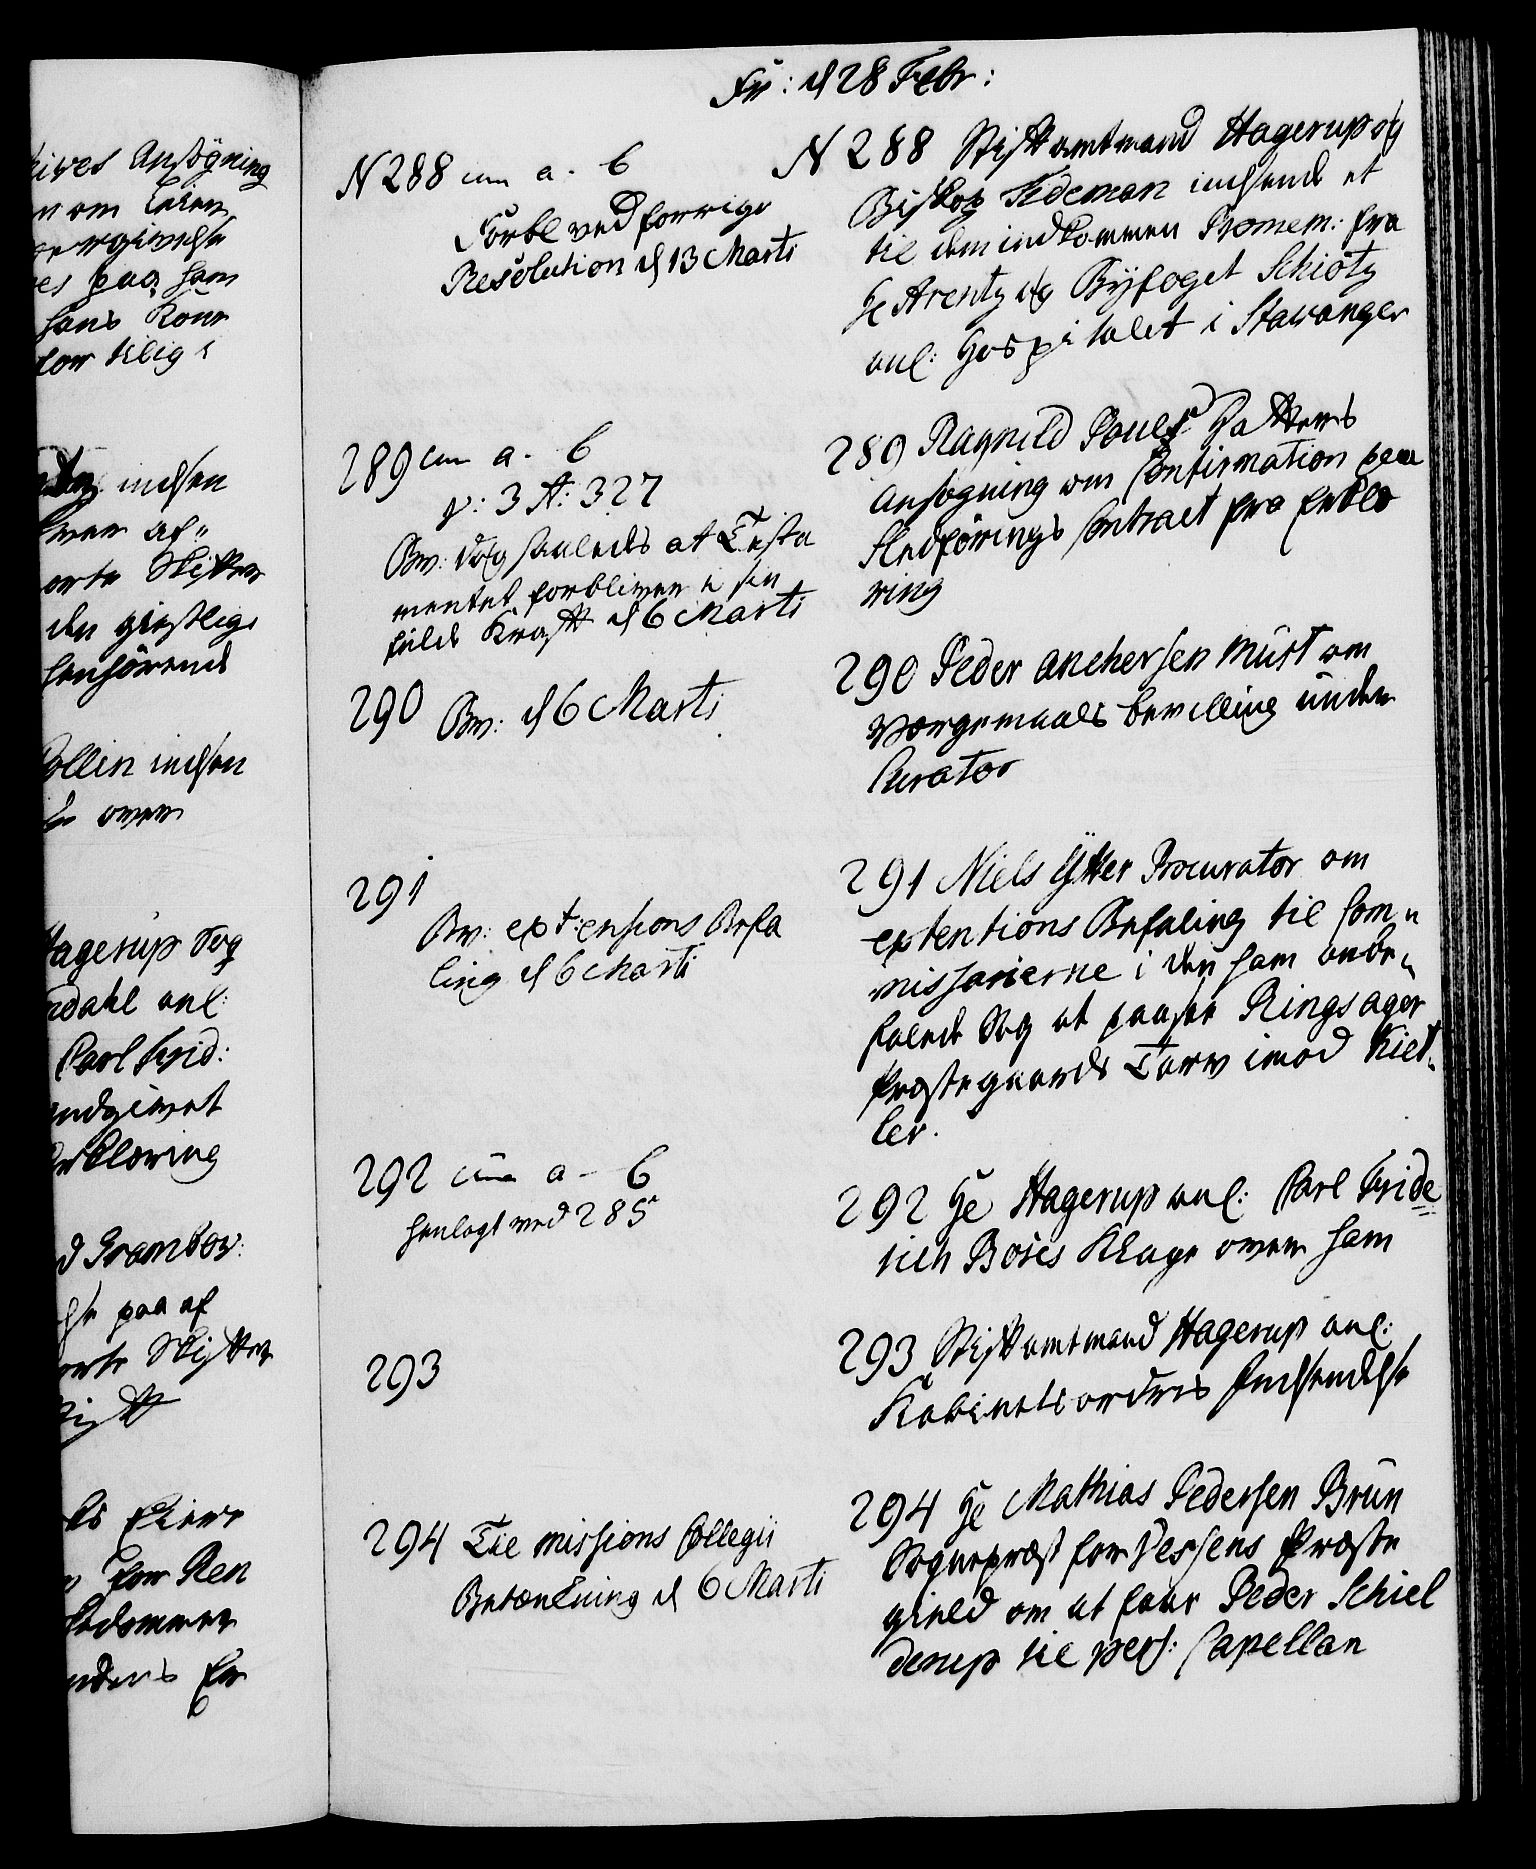 Fr: d 28 Febr:
N 288 cum a. b
Forbl ved forrige
Resolution d 13 Marti
N 288 Stiftamtmand Hagerup og
Biskop Tideman indsend et
til dem indkommen Promem: fra
He Arentz og Byfoget Schiøtz
anl: Hospitalet i Stavanger
289 cum a. b
v: 3 A: 327
Bv: dog saaleds at Testa
mentet forbliver i sin
fulde Krafft d 6 Marti
289 Ragnild Pouls Datters
Ansøgning om Confirmation paa
fledførings Contract fra
ring
290 Bv: d 6 Marti
290 Peder Anchersen Must om
Værgemaals bevilling under
Curator
291
Bv: extensions Befa
ling d 6 Marti
291 Niels Ytter Procurator om
extentions Befaling til Com„
missarierne i den ham anbe„
falede Sag at paatale Ringsager
Præstegaards Tarv imod Kiel„
ler.
292 cum a - b
henlagt ved 285
292 He Hagerup anl: Carl Fride
rich Boies Klage over ham
293
293 Stiftamtmand Hagerup anl:
Kabinetsordres Indsendelse
294 Til missions Collegii
Betænkning d 6 Marti
294 He Mathias Pedersen Brun
Sognepræst for Vefsens Præste
gield om at faae Peder Schiel
derup til pers: Capellan
Ansøgning
paa ham
hans
indsen
Skifter
den giestlige
henhørende
Collin indsen
over
Hagerup Sog
dahl anl:
Carl Frid:
indgivet
Erklæring
d Frambov:
paa af
Skifter
for Ren